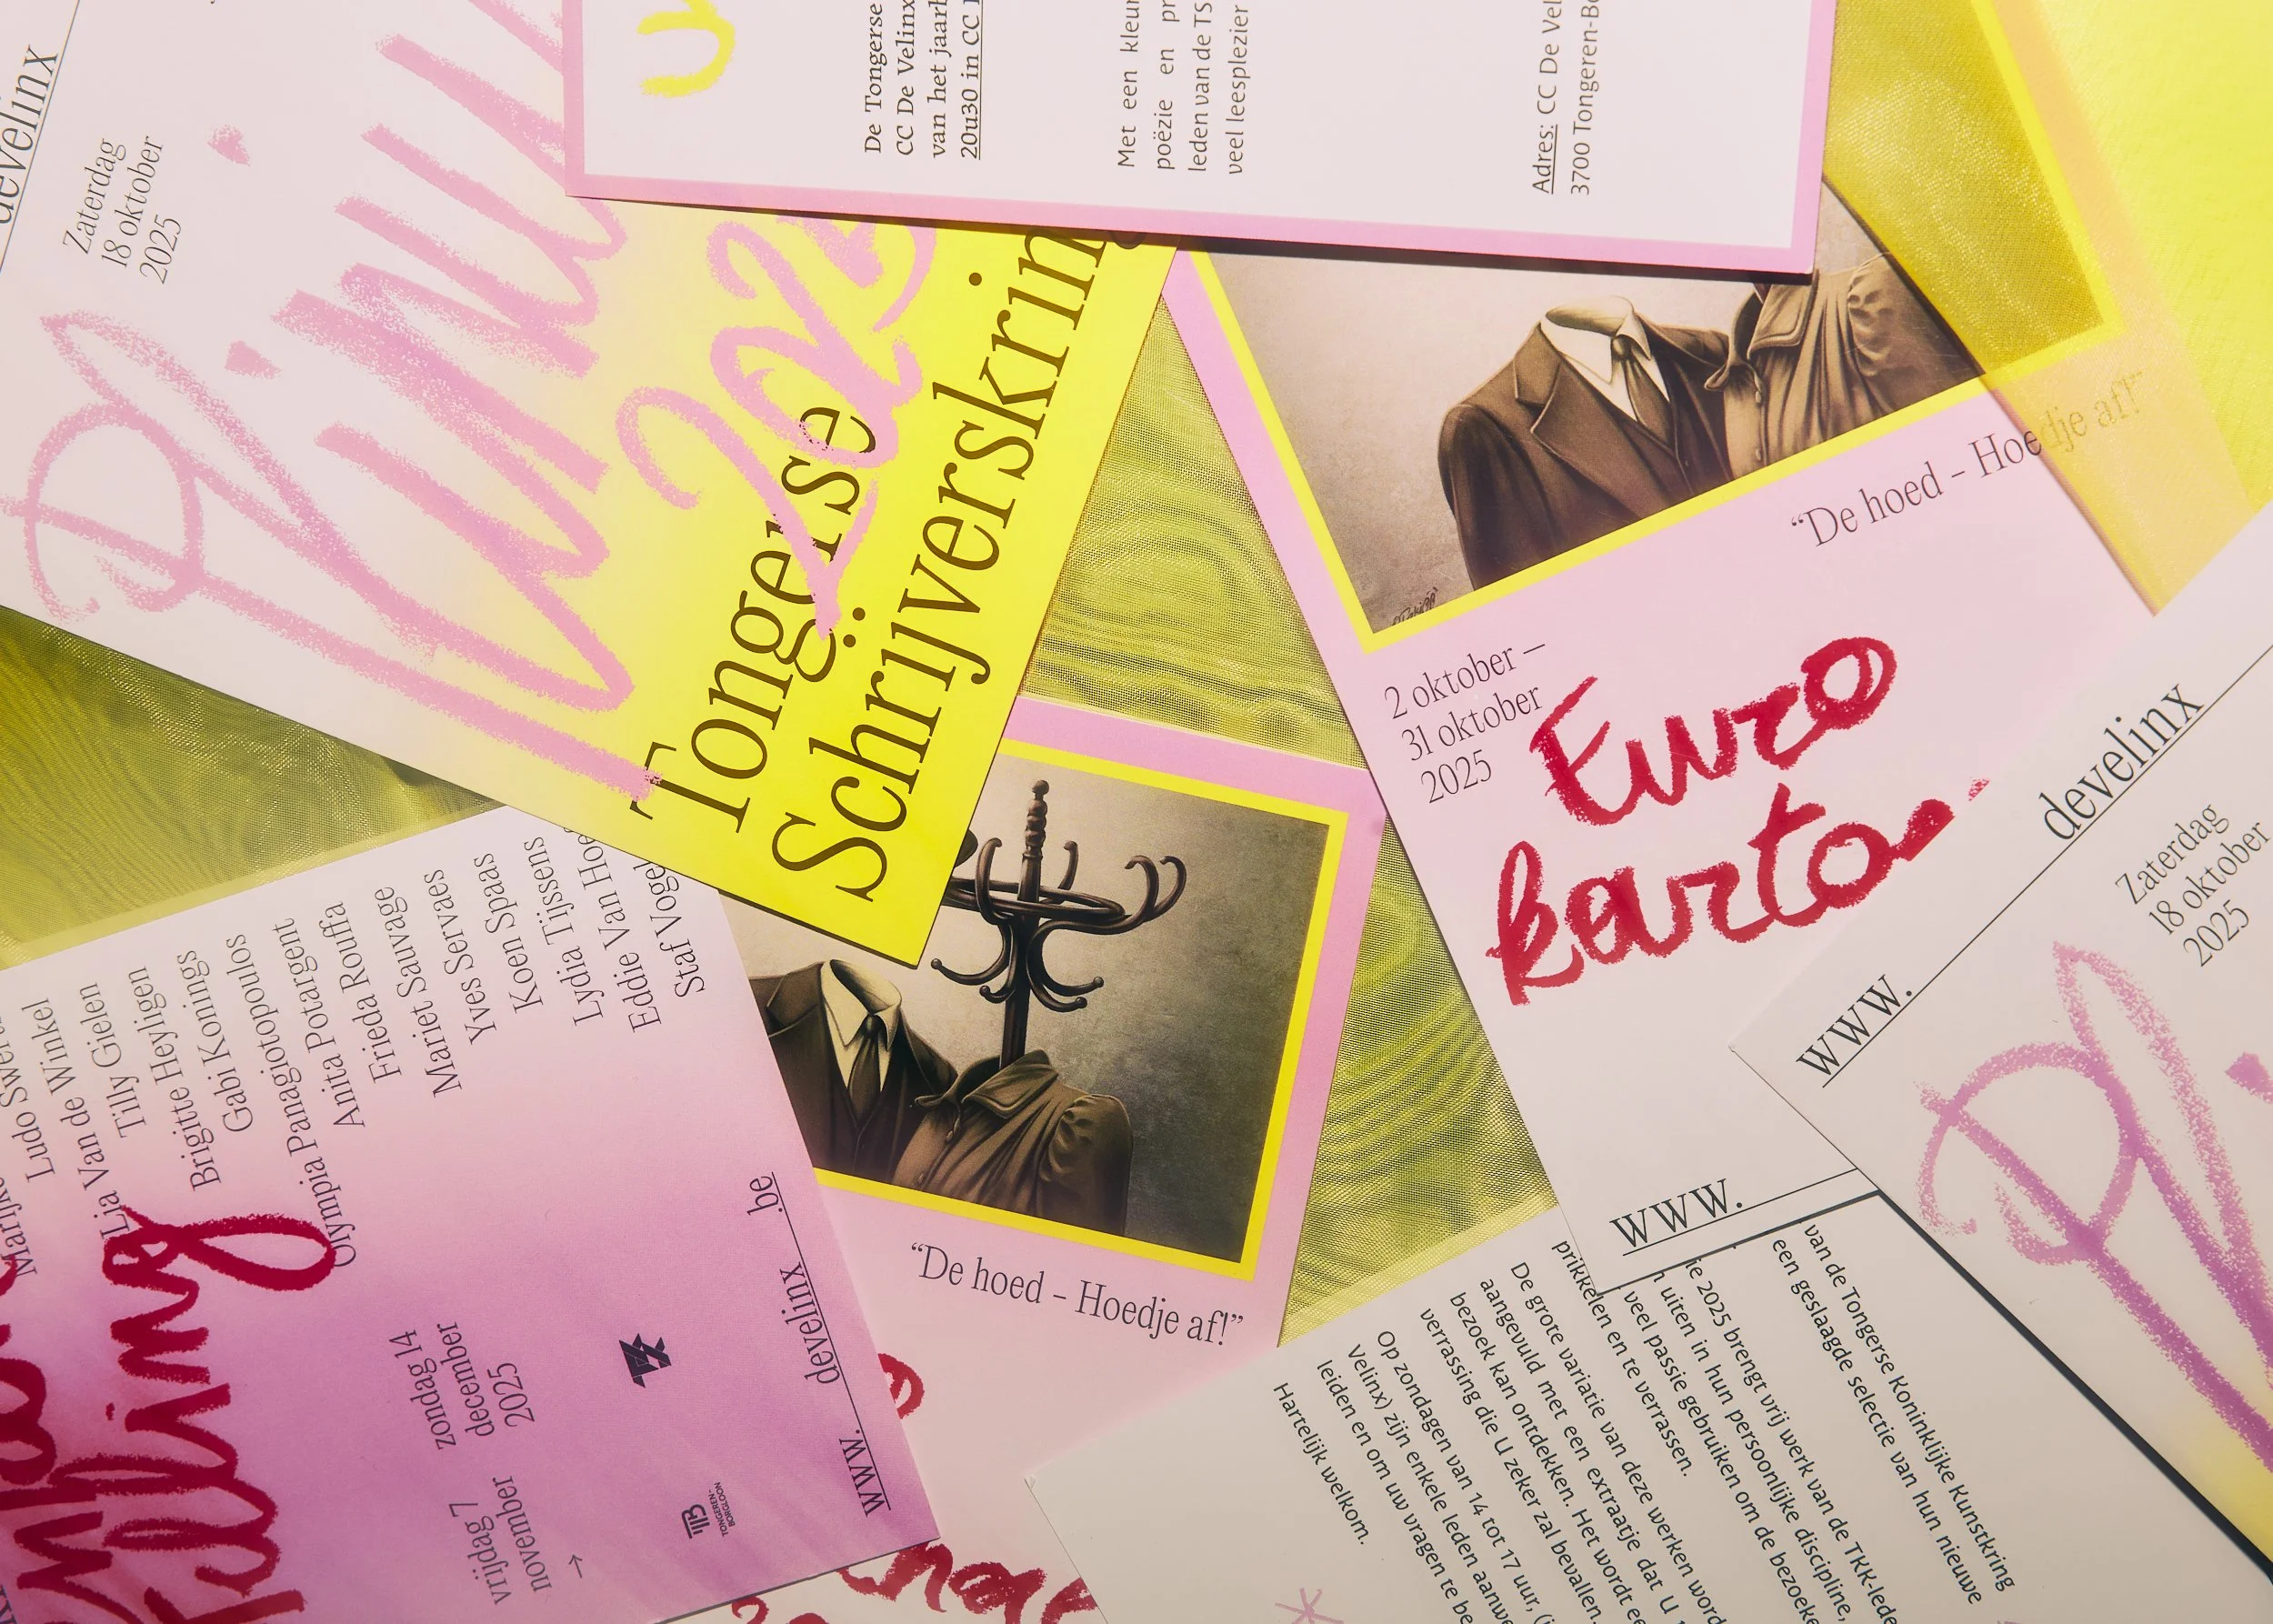 develinx
Zaterdag
18 oktober
2025
2025
Tongerse
Schrijverskring
De Tongerse
CC De Velinx
van het
20u30 in CC
Met een
poëzie en
leden van de TS
veel leesplezier
Adres: CC De
3700
"De hoed – Hoedje af!"
2 oktober –
31 oktober
2025
Euro
karto
www.
www.
develinx
Zaterdag
18 oktober
2025
"De hoed – Hoedje af!"
Ludo
Lia Van de Winkel
Tilly Gielen
Brigitte Heyligen
Gabi Konings
Olympia Panagiotopoulos
Anita Potargent
Frieda Rouffa
Mariet Sauvage
Yves Servaes
Koen Spaas
Lydia Tijssens
Eddie Van
Staf
vrijdag 7
november
→
zondag 14
december
2025
TONGEREN-
BORGLOON
www. develinx .be
van de Tongerse Koninklijke Kunstkring
een geslaagde selectie van hun nieuwe
2025 brengt vrij werk van de
uiten in hun persoonlijke discipline,
veel passie gebruiken om de
prikkelen en te verrassen.
De grote variatie van deze werken
aangevuld met een extraatje dat U
bezoek kan ontdekken. Het wordt
verrassing die U zeker zal bevallen.
Op zondagen van 14 tot 17 uur,
Velinx) zijn enkele leden
leiden en om uw vragen te
Hartelijk welkom.